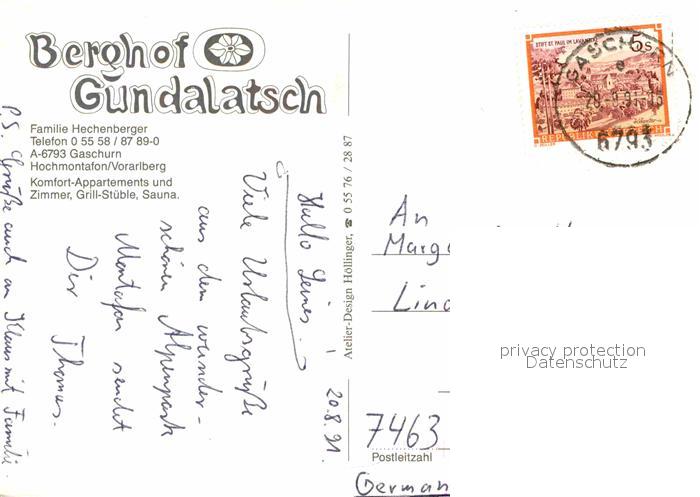 Berghof
Gundalatsch
Familie Hechenberger
Telefon 0 55 58 / 87 89-0
A-6793 Gaschurn
Hochmontafon/Vorarlberg
Komfort-Appartements und
Zimmer, Grill-Stüble, Sauna.
20.8.91.
Hallo
Viele Urlaubsgrüße
aus dem wunder-
schönen Alpenpark
Montafon sendet
Dir Thomas.
P.S. Grüße auch an Klaus mit Familie.
Atelier-Design Höllinger, ☎ 0 55 76 / 28 87
STIFT ST. PAUL IM LAVANTTAL
5s
REPUBLIK
GASCHURN
6793
An
Marg
Lin
7463
Postleitzahl
German
privacy protection
Datenschutz